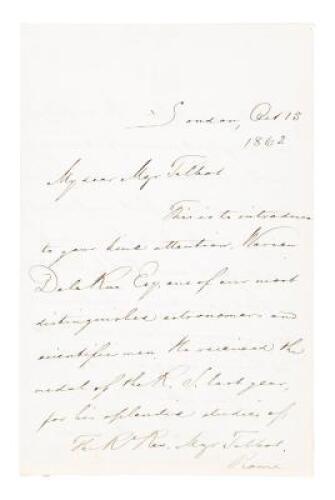 London, Oct 15
1862
My dear Mgr Talbot
This is to introduce
to your kind attention, Warren
De la Rue Esq. one of our most
distinguished astronomers and
scientific men. He received the
medal of the R. S. last year,
for his splendid studies of
The Rt. Rev. Mgr Talbot.
Rome